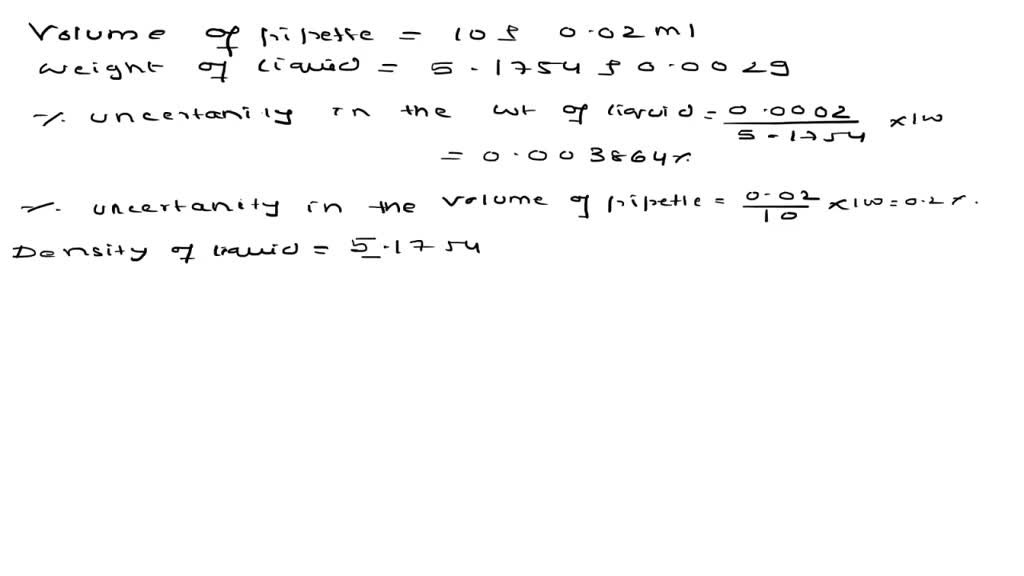 Volume of pipette = 10 ± 0.02 ml
weight of liquid = 5.1754 ± 0.002g
%. uncertanity in the wt of liquid = 0.0002 / 5.1754 × 100
= 0.003864%
%. uncertanity in the volume of pipette = 0.02 / 10 × 100 = 0.2%.
Density of liquid = 5.1754